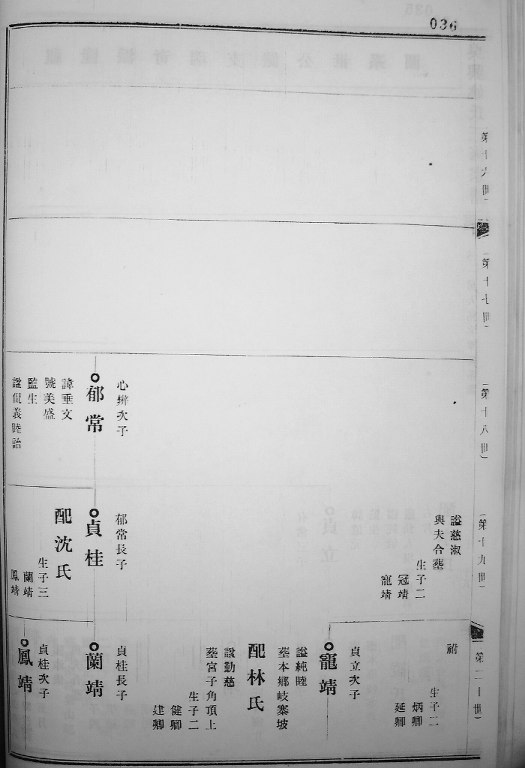 036
第十六世
第十七世
第十八世
心辨次子
郁常
諱垂文
號美盛
監生
諡侃義睦詒
第十九世
諡慈淑
與夫合塟
生子二
冠靖
寵靖
郁常長子
貞桂
配沈氏
生子三
蘭靖
鳳靖
第二十世
祔
生子二
炳卿
延卿
貞立次子
寵靖
諡純睦
塟本鄉岐寨坡
配林氏
諡勤慈
塟宮子角頂上
生子二
健卿
建卿
貞桂長子
蘭靖
貞桂次子
鳳靖